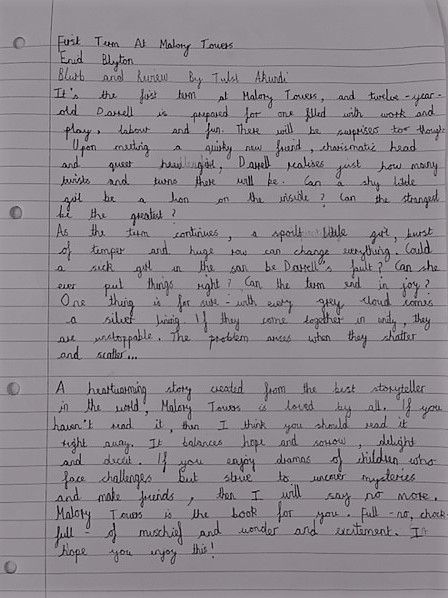 First Term At Malory Towers
Enid Blyton
Blurb and Review By Tulsi
It's the first term at Malory Towers, and twelve-year-
old Darrell is prepared for one filled with work and
play, labour and fun. There will be surprises too though.
Upon meeting a quirky new friend, charismatic head
and queer new girl, Darrell realises just how many
twists and turns there will be. Can a shy little
girl be a lion on the inside? Can the strangest
be the greatest?
As the term continues, a spoilt little girl, burst
of temper and huge row can change everything. Could
a sick girl in the san be Darrell's fault? Can she
ever put things right? Can the term end in joy?
One thing is for sure - with every grey cloud comes
a silver lining. If they come together in unity, they
are unstoppable. The problem arises when they shatter
and scatter...
A heartwarming story created from the best storyteller
in the world, Malory Towers is loved by all. If you
haven't read it, then I think you should read it
right away. It balances hope and sorrow, delight
and deceit. If you enjoy dramas of children who
face challenges but strive to uncover mysteries
and make friends, then I will say no more.
Malory Towers is the book for you. Full - no, chock-
full - of mischief and wonder and excitement. I
hope you enjoy this!